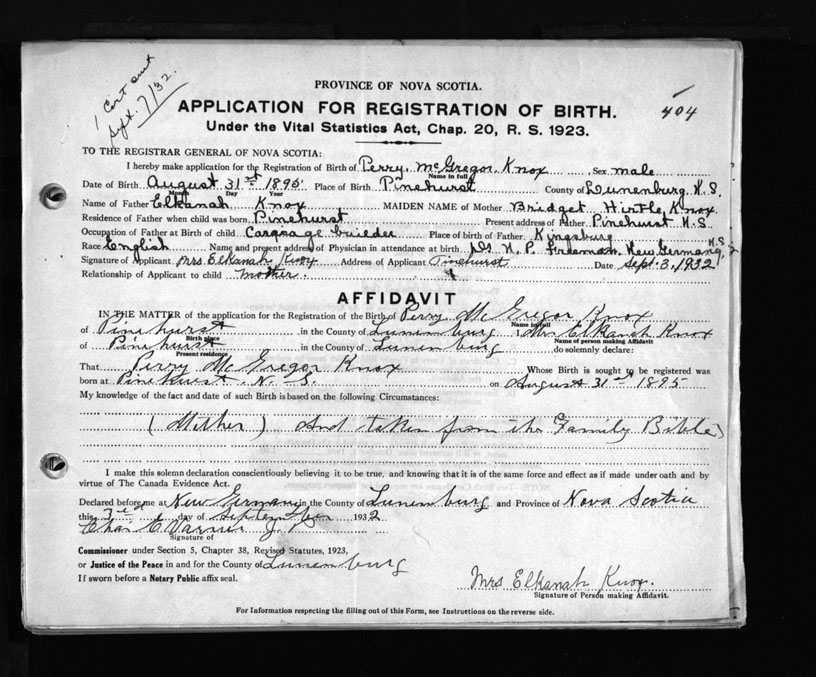 1 Cert sent
Sept. 7/32.
PROVINCE OF NOVA SCOTIA.
404
APPLICATION FOR REGISTRATION OF BIRTH.
Under the Vital Statistics Act, Chap. 20, R. S. 1923.
TO THE REGISTRAR GENERAL OF NOVA SCOTIA:
I hereby make application for the Registration of Birth of Perry McGregor Knox, Sex male
Name in full
Date of Birth August 31st 1895 Place of Birth Pinehurst County of Lunenburg, N.S.
Month Day Year
Name of Father Elkanah Knox MAIDEN NAME of Mother Bridget Hirtle Knox
Residence of Father when child was born Pinehurst Present address of Father Pinehurst N.S.
Occupation of Father at Birth of child Carraage builder Place of birth of Father Kingsburg
Race English Name and present address of Physician in attendance at birth Dr N. P. Freeman, New Germany, N.S.
Signature of Applicant Mrs. Elkanah Knox Address of Applicant Pinehurst Date Sept. 3, 1932
Relationship of Applicant to child mother.
AFFIDAVIT
IN THE MATTER of the application for the Registration of the Birth of Perry McGregor Knox
Name in full
of Pinehurst in the County of Lunenburg Mrs Elkanah Knox
Birth place Name of person making Affidavit
of Pinehurst in the County of Lunenburg do solemnly declare:
Present residence
That Perry McGregor Knox Whose Birth is sought to be registered was
born at Pinehurst, N. S. on August 31st 1895
My knowledge of the fact and date of such Birth is based on the following Circumstances:
(Mother) And taken from the Family Bible
I make this solemn declaration conscientiously believing it to be true, and knowing that it is of the same force and effect as if made under oath and by
virtue of The Canada Evidence Act.
Declared before me at New Germany in the County of Lunenburg and Province of Nova Scotia
this 3rd day of September 1932
Chas E J. P
Signature of
Commissioner under Section 5, Chapter 38, Revised Statutes, 1923,
or Justice of the Peace in and for the County of Lunenburg
If sworn before a Notary Public affix seal.
Mrs Elkanah Knox.
Signature of Person making Affidavit.
For Information respecting the filling out of this Form, see Instructions on the reverse side.